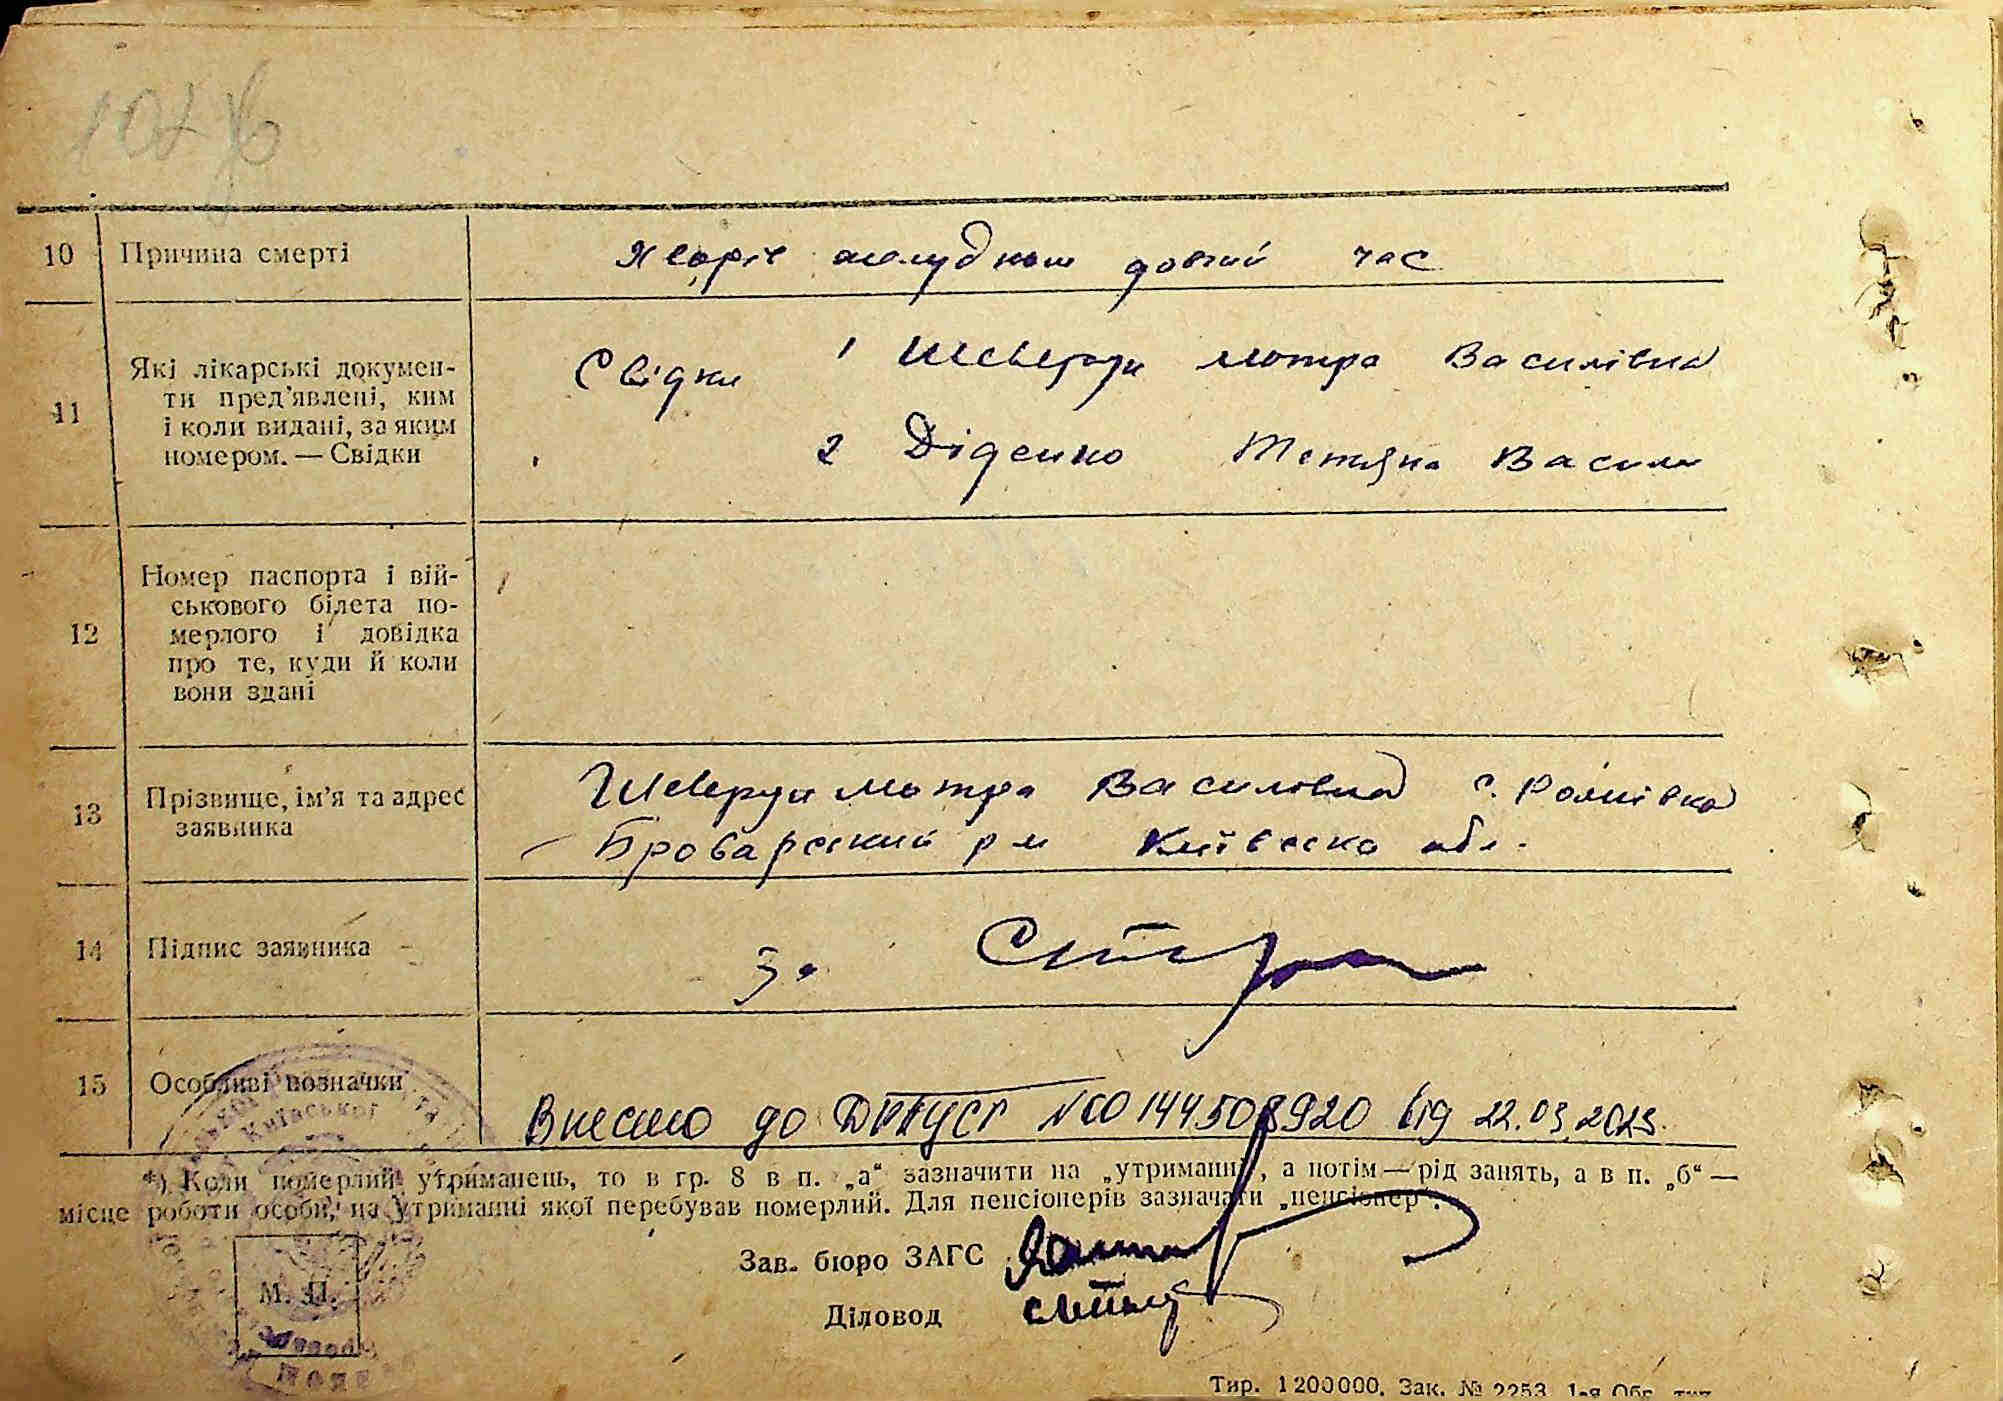 10
Причина смерті
Хворіє шлудком довгий час
11
Які лікарські докумен-
ти пред'явлені, ким
і коли видані, за яким
номером. — Свідки
Свідки 1 Мотра Василівна
2 Діденко Тетяна Васили
12
Номер паспорта і вій-
ськового білета по-
мерлого і довідка
про те, куди й коли
вони здані
13
Прізвище, ім'я та адрес
заявника
Мотра Василівна с.
Броварський р н Київська обл.
14
Підпис заявника
За
15
Особливі позначки
Внесено до ДРАЦСГ №00144508920 від 22.03.2023.
*) Коли померлий утриманець, то в гр. 8 в п. „а“ зазначити на „утриманні“, а потім — рід занять, а в п. „б“ —
місце роботи особи, на утриманні якої перебував померлий. Для пенсіонерів зазначати „пенсіонер“.
Зав. бюро ЗАГС
М. П.
Діловод
Київської
Тир. 1200000. Зак. № 2253. 1-я Обр. тип